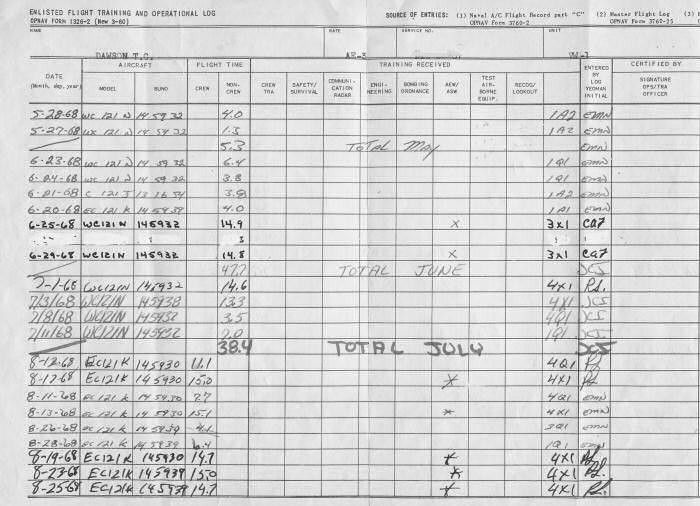 ENLISTED FLIGHT TRAINING AND OPERATIONAL LOG
OPNAV FORM 1326-2 (New 3-60)
SOURCE OF ENTRIES: (1) Naval A/C Flight Record part "C" (2) Master Flight Log (3)
OPNAV Form 3760-2 OPNAV Form 3760-25
NAME RATE SERVICE NO. UNIT
DAWSON T.C.
DATE (Month, day, year) AIRCRAFT FLIGHT TIME TRAINING RECEIVED ENTERED BY LOG YEOMAN INITIAL CERTIFIED BY
MODEL BUNO CREW NON-CREW CREW TRA SAFETY/SURVIVAL COMMUNI-CATION RADAR ENGI-NEERING BOMBING ORDNANCE AEW/ASW TEST AIR-BORNE EQUIP. RECOG/LOOKOUT SIGNATURE OPS/TRA OFFICER
5-28-68 WC 121 N 145932 4.0 1A2 EMN
5-27-68 WC 121 N 145932 1.3 1A2 EMN
5.3 TOTAL MAY EMN
6-23-68 WC 121 N 145932 6.4 1Q1 EMN
6-24-68 WC 121 N 145932 3.8 1Q1 EMN
6-21-68 C 121 J 131654 3.8 1A2 EMN
6-20-68 EC 121 K 145939 4.0 1A1 EMN
6-25-68 WC121N 145932 14.9 X 3X1 CA7
6-29-68 WC121N 145932 14.8 X 3X1 CA7
47.7 TOTAL JUNE JCS
7-1-68 WC121N 145932 14.6 4X1
7/3/68 WC121N 145938 13.3 4X1 JCS
7/8/68 WC121N 145932 3.5 4Q1 JCS
7/11/68 WC121N 145932 7.0 1Q1 JCS
38.4 TOTAL JULY JCS
8-12-68 EC121K 145930 11.1 4Q1
8-17-68 EC121K 145930 15.0 X 4X1
8-11-68 EC 121 K 145930 7.7 4Q1 EMN
8-13-68 EC 121 K 145930 15.1 X 4X1 EMN
8-26-68 EC 121 K 145939 4.1 3Q1 EMN
8-28-68 EC 121 K 145939 6.4 1Q1 EMN
8-19-68 EC121K 145930 14.7 X 4X1
8-23-68 EC121K 145939 15.0 X 4X1
8-25-68 EC121K 145939 14.7 X 4X1